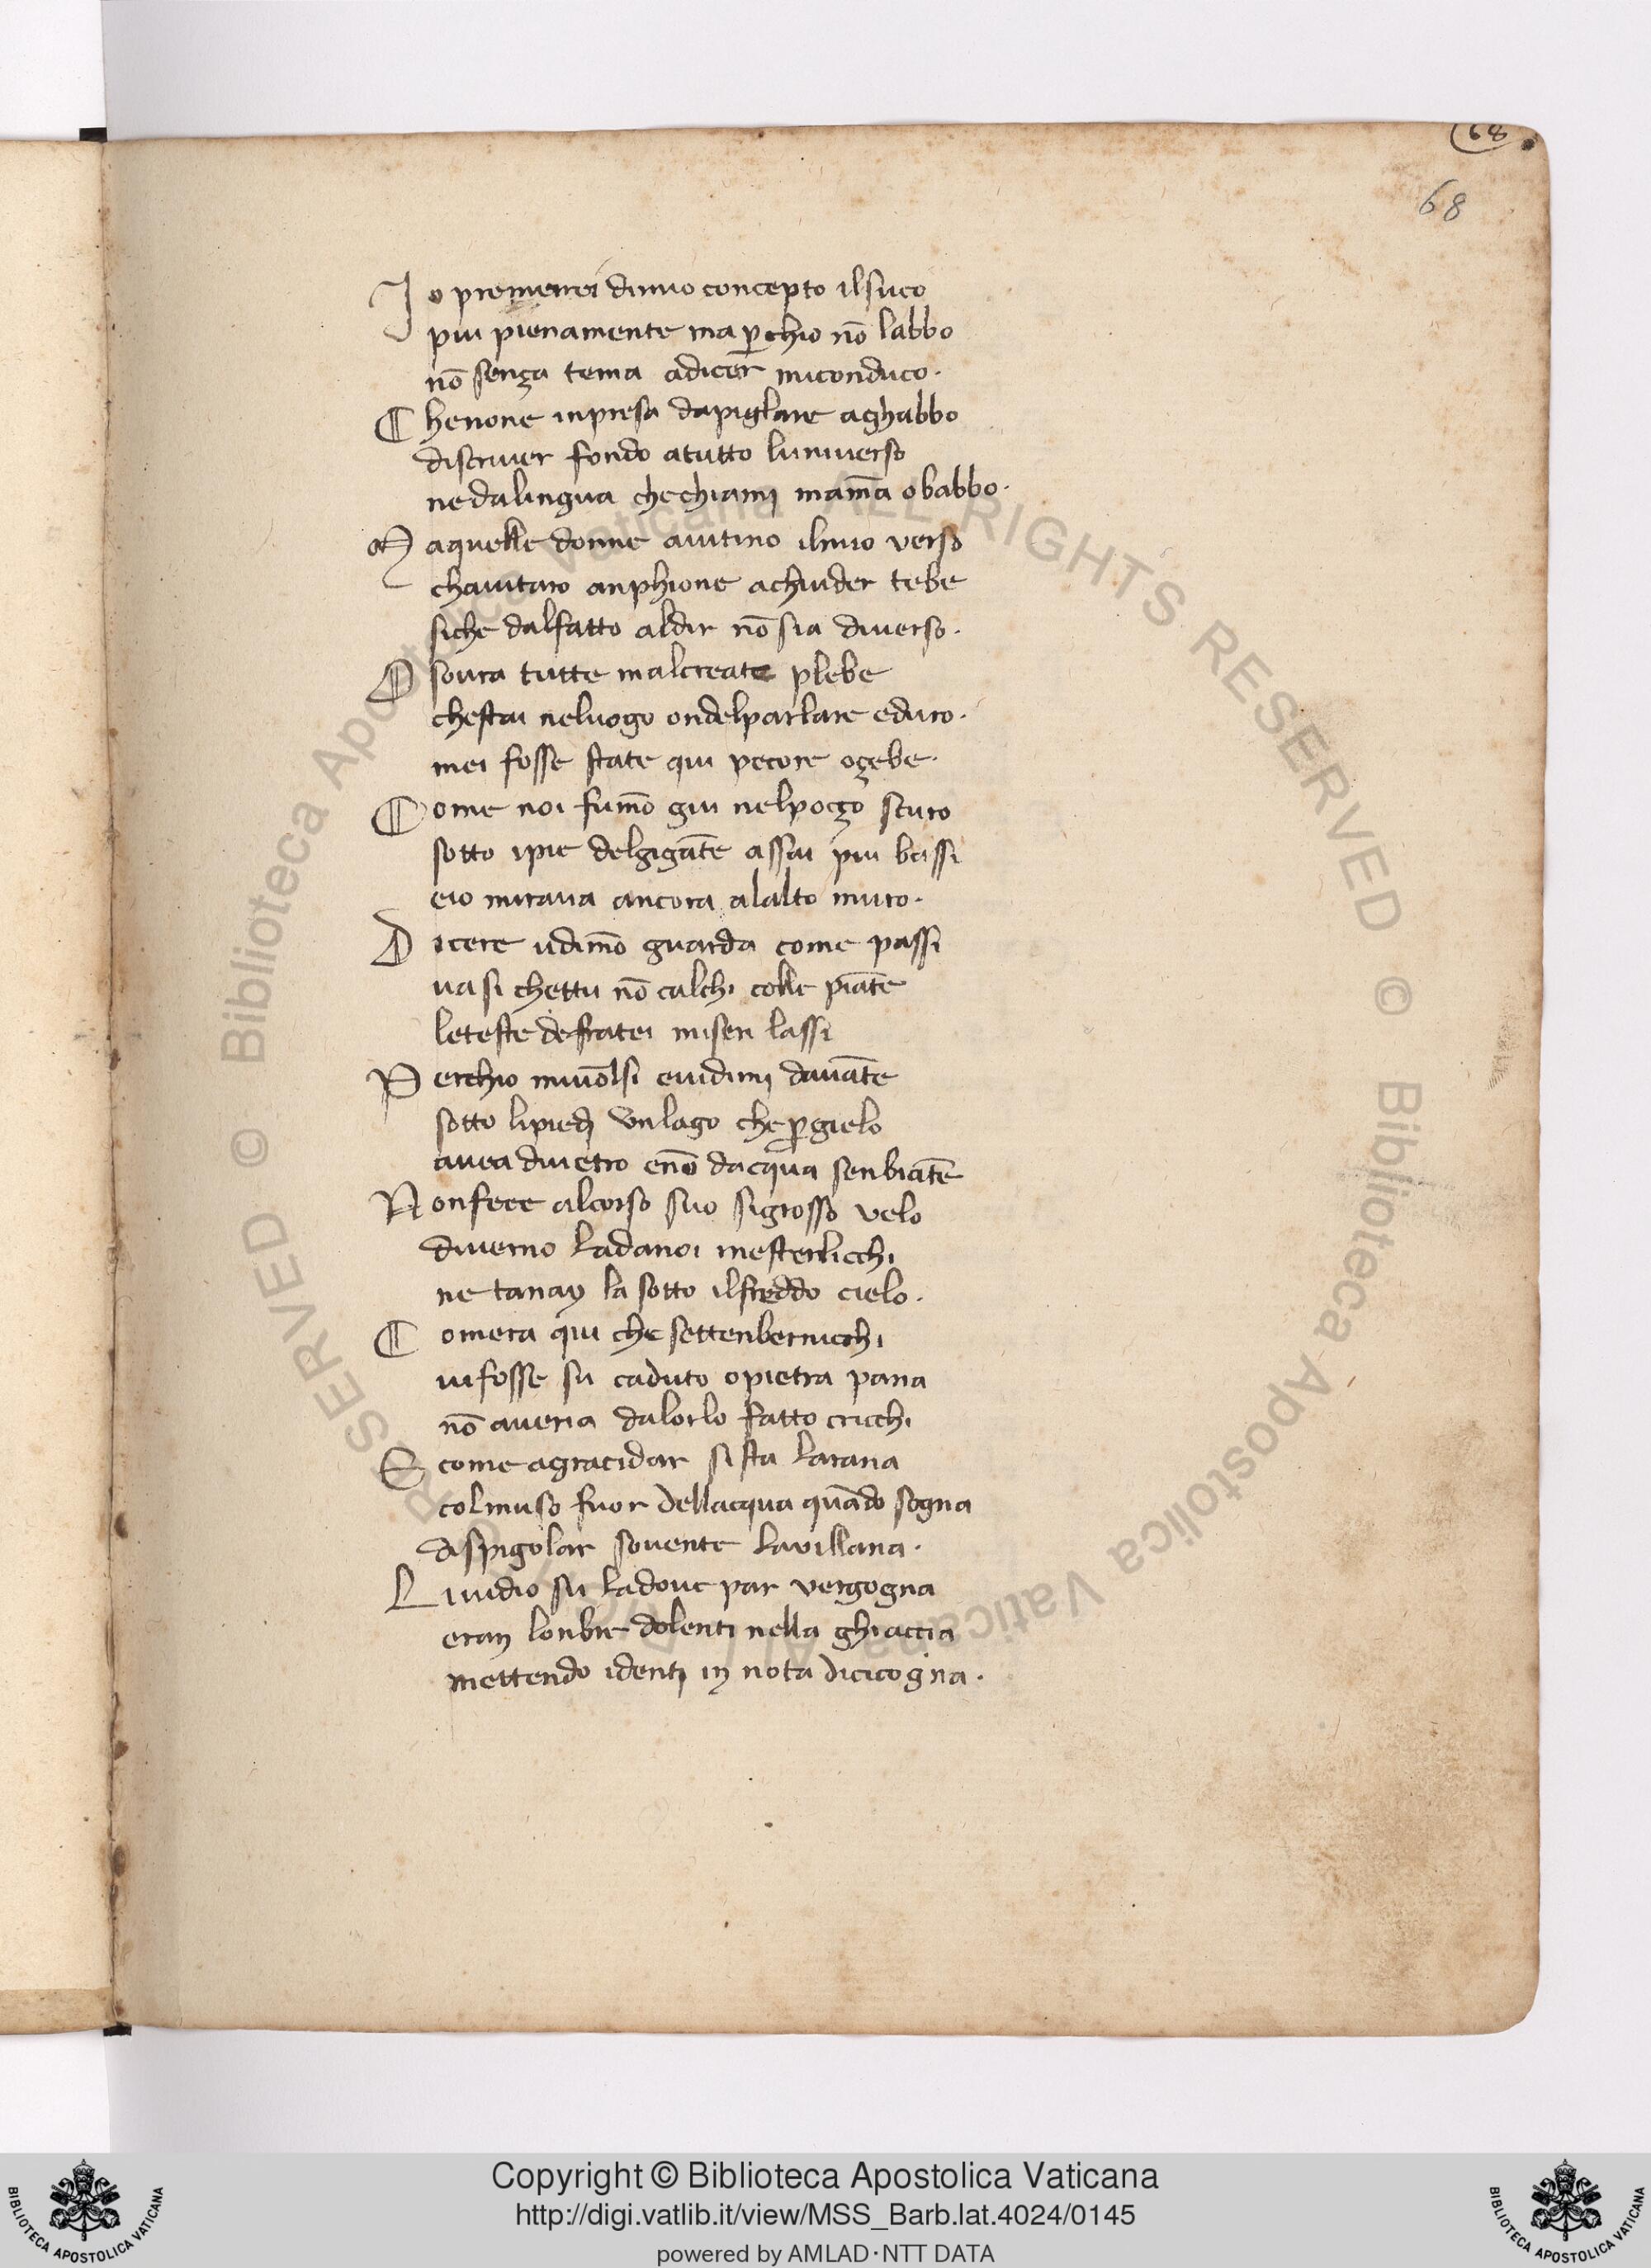 68
68
Io premerrei dimio concepto ilsuco
piu pienamente ma ꝑchio nō labbo
nō sença tema adicer miconduco.
Chenone inpresa dapiglare aghabbo
discriuer fondo atutto luniuerso
nedalingua chechiamj māma obabbo.
Maquelle donne aiutino ilmio verso
chaiutaro anphione achiuder tebe
siche dalfatto aldir nō sia diuerso.
O soura tutte malcreate plebe
chestai neluogo ondelparlare eduro.
mei fosse state qui pecore oçebe.
Come noi fumō giu nelpoço scuro
sotto ipie delgigāte assai piu bassi
eio miraua ancora alalto muro.
Dicere udimō guarda come passi
ua si chettu nō calchi colle piāte
leteste defratei miseri lassi
Perchio miuolsi euidimj dauāte
sotto lipiedj vnlago che ꝑ gielo
auea diuetro enō dacqua senbiāte
Nonfece alcorso suo sigrosso velo
diuerno ladanoi insterlicchi
ne tanay la sotto ilfreddo cielo.
Comera qui che settenbernicchi
uifosse su caduto opietra pana
nō aueria dalorlo fatto cricchi
E come agracidar si sta larana
colmuso fuor dellacqua quādo sogna
dispigolar souente lauillana.
Liuidio su ladoue par vergogna
eran lonbre dolenti nella ghiaccia
mettendo identj in nota dicicogna.
Copyright © Biblioteca Apostolica Vaticana
http://digi.vatlib.it/view/MSS_Barb.lat.4024/0145
powered by AMLAD·NTT DATA
BIBLIOTECA APOSTOLICA VATICANA
BIBLIOTECA APOSTOLICA VATICANA